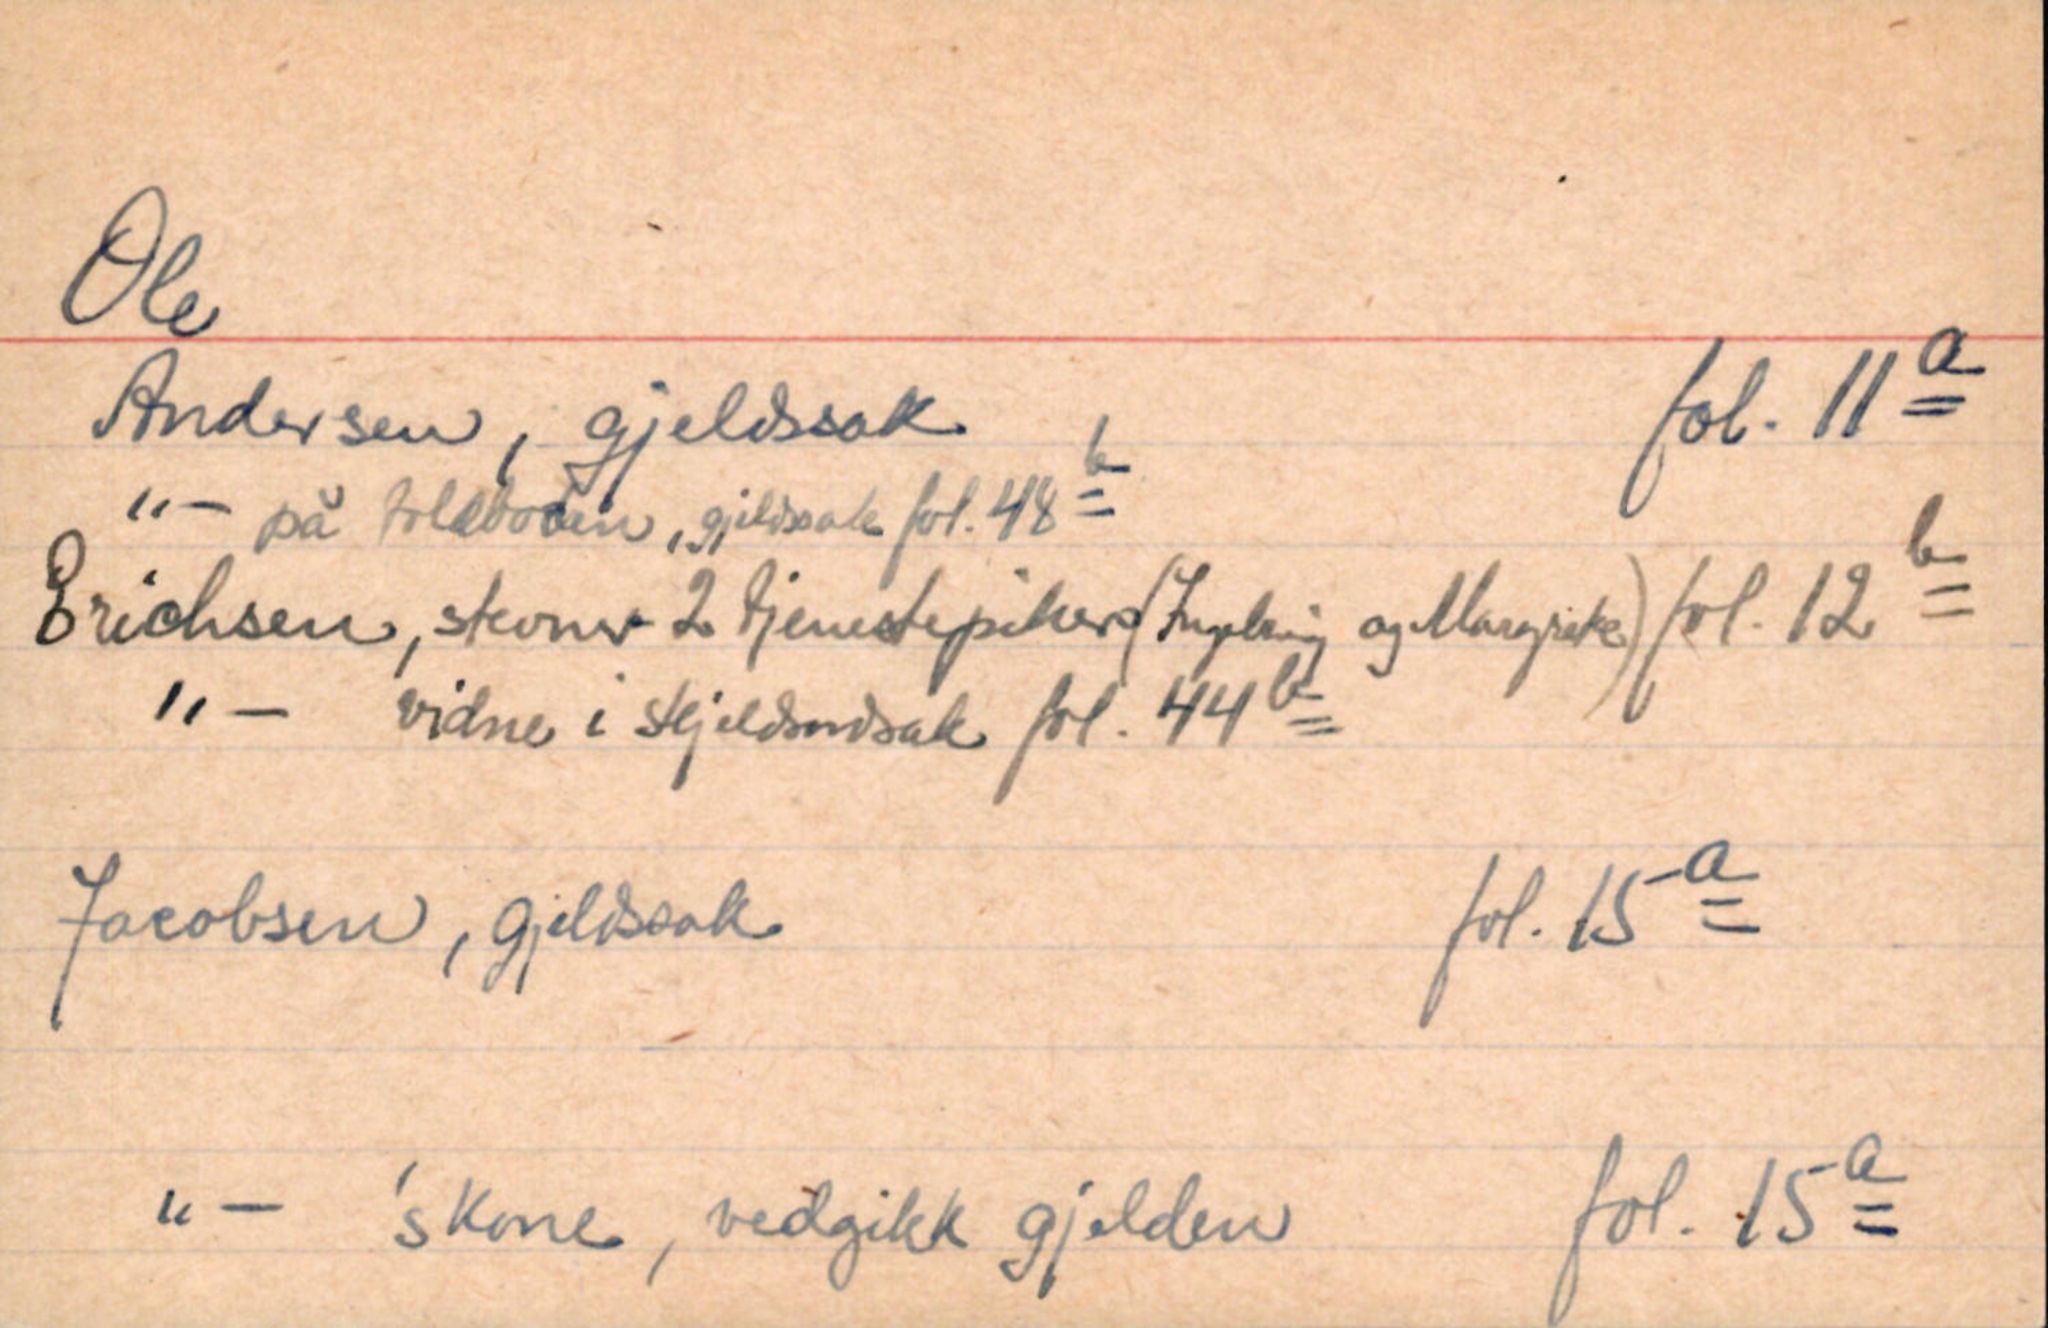 Ole
Andersen, gjeldssak fol. 11 a
"— på toldboden, gjeldssak fol. 48 b
Erichsen, stevner 2 tjenestepiker (Ingebrig og Margrete) fol. 12 b
"— vidne i skjeldsordsak fol. 44 b
Jacobsen, gjeldssak fol. 15 a
"— 's kone, vedgikk gjelden fol. 15 a